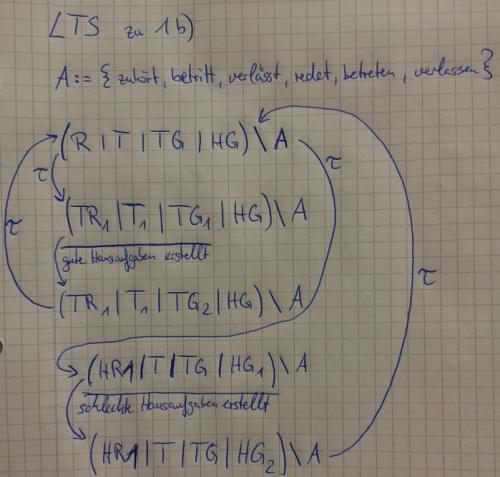 LTS zu 1b)
A := {zuhört, betritt, verlässt, redet, betreten, verlassen}
(R | T | TG | HG) \ A
τ
τ
(TR₁ | T₁ | TG₁ | HG) \ A
τ
gute Hausaufgaben erstellt
(TR₁ | T₁ | TG₂ | HG) \ A
τ
(HR1 | T | TG | HG₁) \ A
schlechte Hausaufgaben erstellt
(HR1 | T | TG | HG₂) \ A